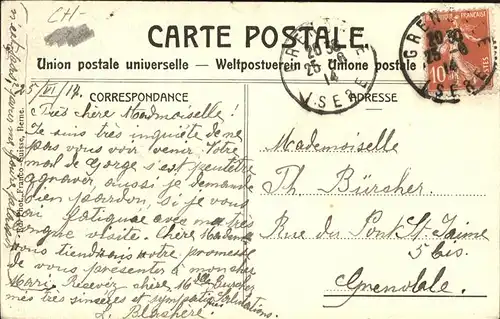 CH-
CARTE POSTALE.
Union postale universelle. — Weltpostverein. — Unione postale
CORRESPONDANCE
ADRESSE
GRENOBLE
20 30
25 - 6
14
ISERE
GRENOBLE
20 30
25 - 6
14
ISERE
10
Phot. Franco-Suisse, Berne.
25/VI/14.
Très chère Mademoiselle!
Je suis très inquiète de ne
pas vous voir venir. Votre
mal de gorge s'est peutêtre
aggraver, aussi je demande
bien pardon, si je vous
ai fatiguée avec ma très
longue visite. Chère Madem.
vous tiendrez votre promesse
de vous presenter à mon cher
Mari. Recevez chère Mlle Burcher
mes très sincères et sympatiques Salutations.
L. Blashere
Mademoiselle
Th. Bürsher.
Rue du Pont St. Jaime
5 bis
Grenoble.